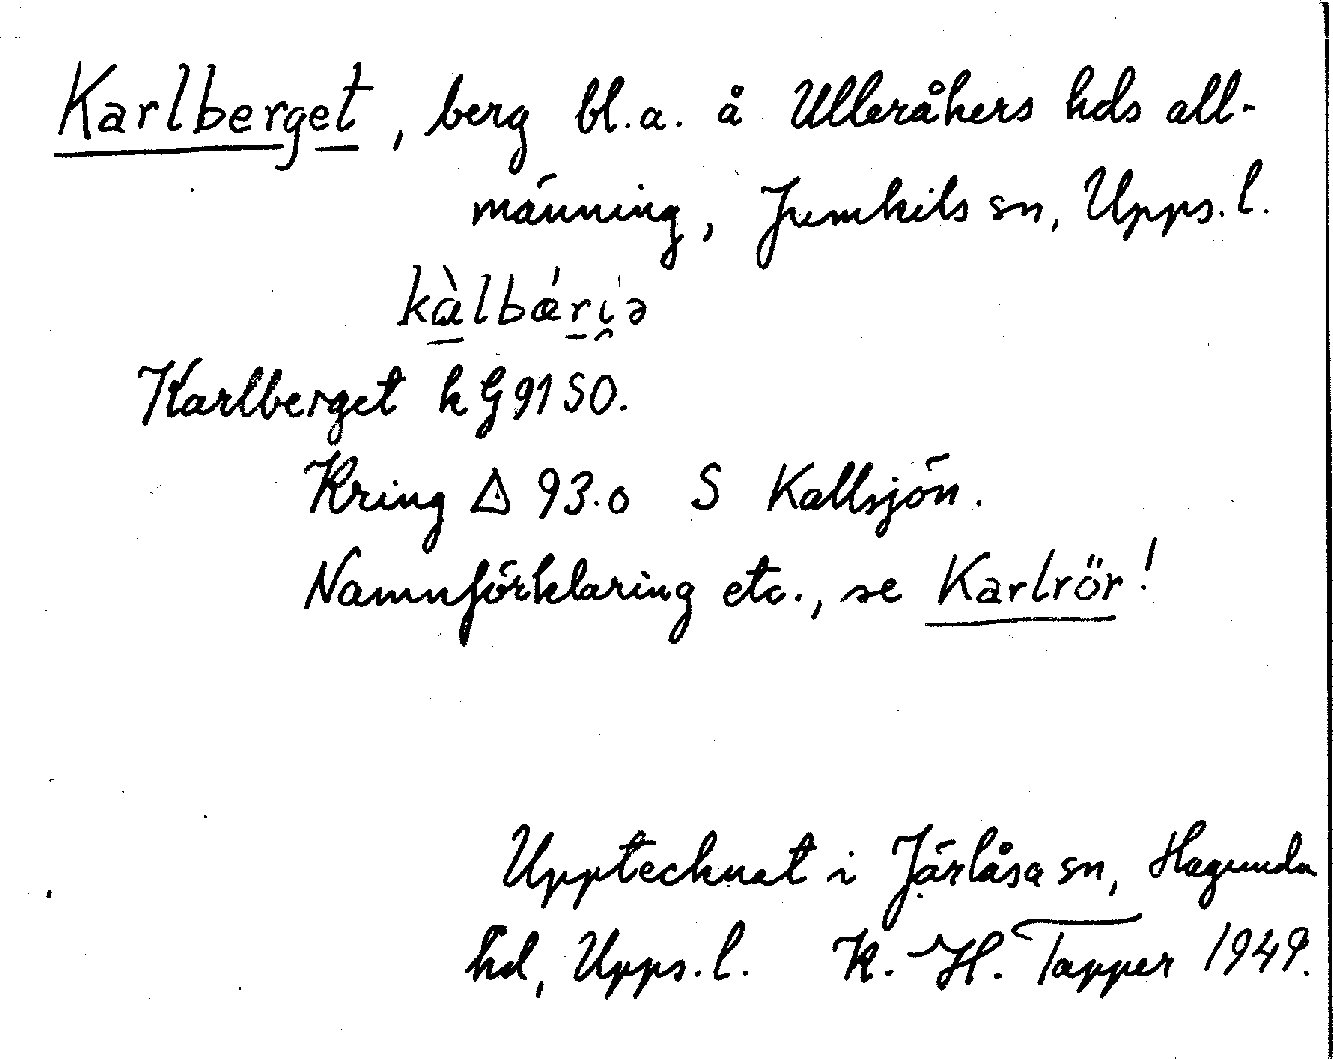 Karlberget, berg bl.a. å Ulleråkers hds all-
männing, Jumkils sn, Upps. l.
kàlbǽri̯ə
Karlberget k G 91 SO.
Kring △ 93.0 S Kallsjön.
Namnförklaring etc., se Karlrör!
Upptecknat i Järlåsa sn, Hagunda
hd, Upps. l. K.-H. Tapper 1949.